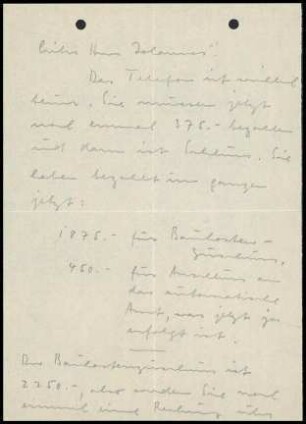 Lieber Herr
Das Telefon ist
Sie müssen jetzt
noch einmal 375.- bezahlen
und dann ist Schluss. Sie
haben bezahlt im ganzen
jetzt:
1875.- für Baukosten-
zuschuss,
450.- für Anschluss an
das automatische
Amt, was jetzt ja
erfolgt ist.
Der Baukostenzuschuss ist
2250.-, also werden Sie noch
einmal eine Rechnung über